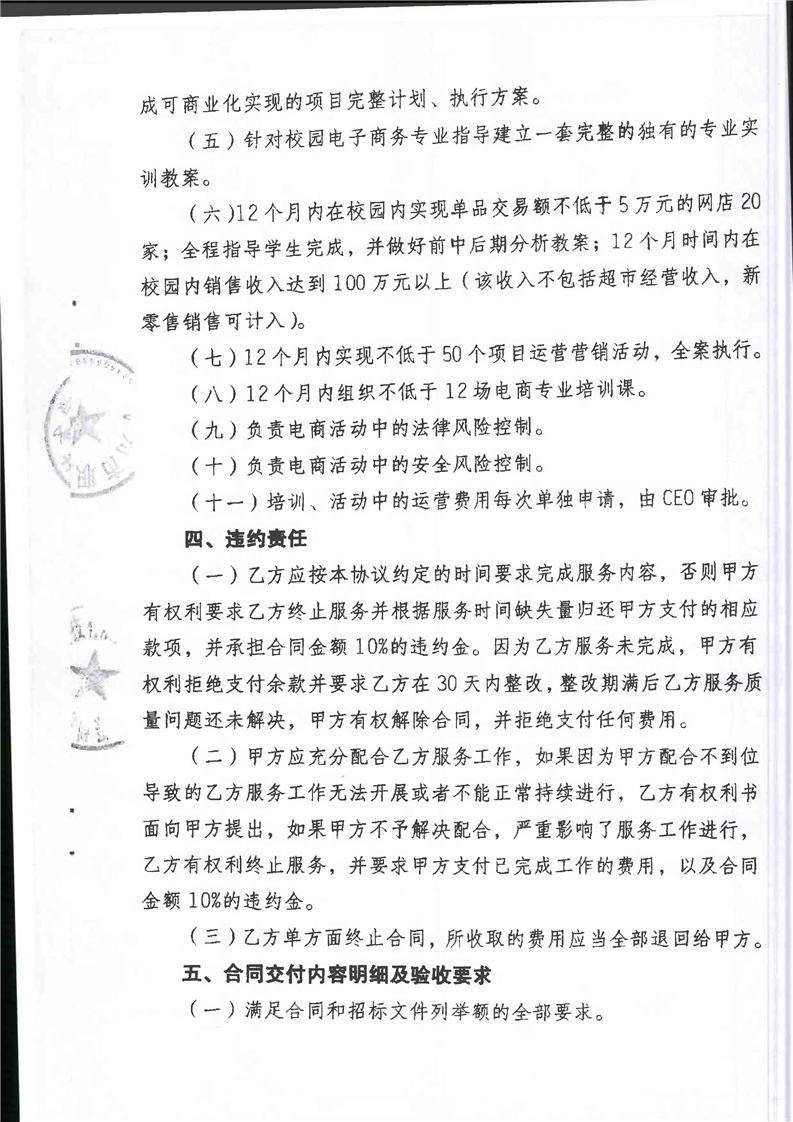 成可商业化实现的项目完整计划、执行方案。
（五）针对校园电子商务专业指导建立一套完整的独有的专业实
训教案。
（六）12个月内在校园内实现单品交易额不低于5万元的网店20
家；全程指导学生完成，并做好前中后期分析教案；12个月时间内在
校园内销售收入达到100万元以上（该收入不包括超市经营收入，新
零售销售可计入）。
（七）12个月内实现不低于50个项目运营营销活动，全案执行。
（八）12个月内组织不低于12场电商专业培训课。
（九）负责电商活动中的法律风险控制。
（十）负责电商活动中的安全风险控制。
（十一）培训、活动中的运营费用每次单独申请，由CEO审批。
四、违约责任
（一）乙方应按本协议约定的时间要求完成服务内容，否则甲方
有权利要求乙方终止服务并根据服务时间缺失量归还甲方支付的相应
款项，并承担合同金额10%的违约金。因为乙方服务未完成，甲方有
权利拒绝支付余款并要求乙方在30天内整改，整改期满后乙方服务质
量问题还未解决，甲方有权解除合同，并拒绝支付任何费用。
（二）甲方应充分配合乙方服务工作，如果因为甲方配合不到位
导致的乙方服务工作无法开展或者不能正常持续进行，乙方有权利书
面向甲方提出，如果甲方不予解决配合，严重影响了服务工作进行，
乙方有权利终止服务，并要求甲方支付已完成工作的费用，以及合同
金额10%的违约金。
（三）乙方单方面终止合同，所收取的费用应当全部退回给甲方。
五、合同交付内容明细及验收要求
（一）满足合同和招标文件列举额的全部要求。
市职